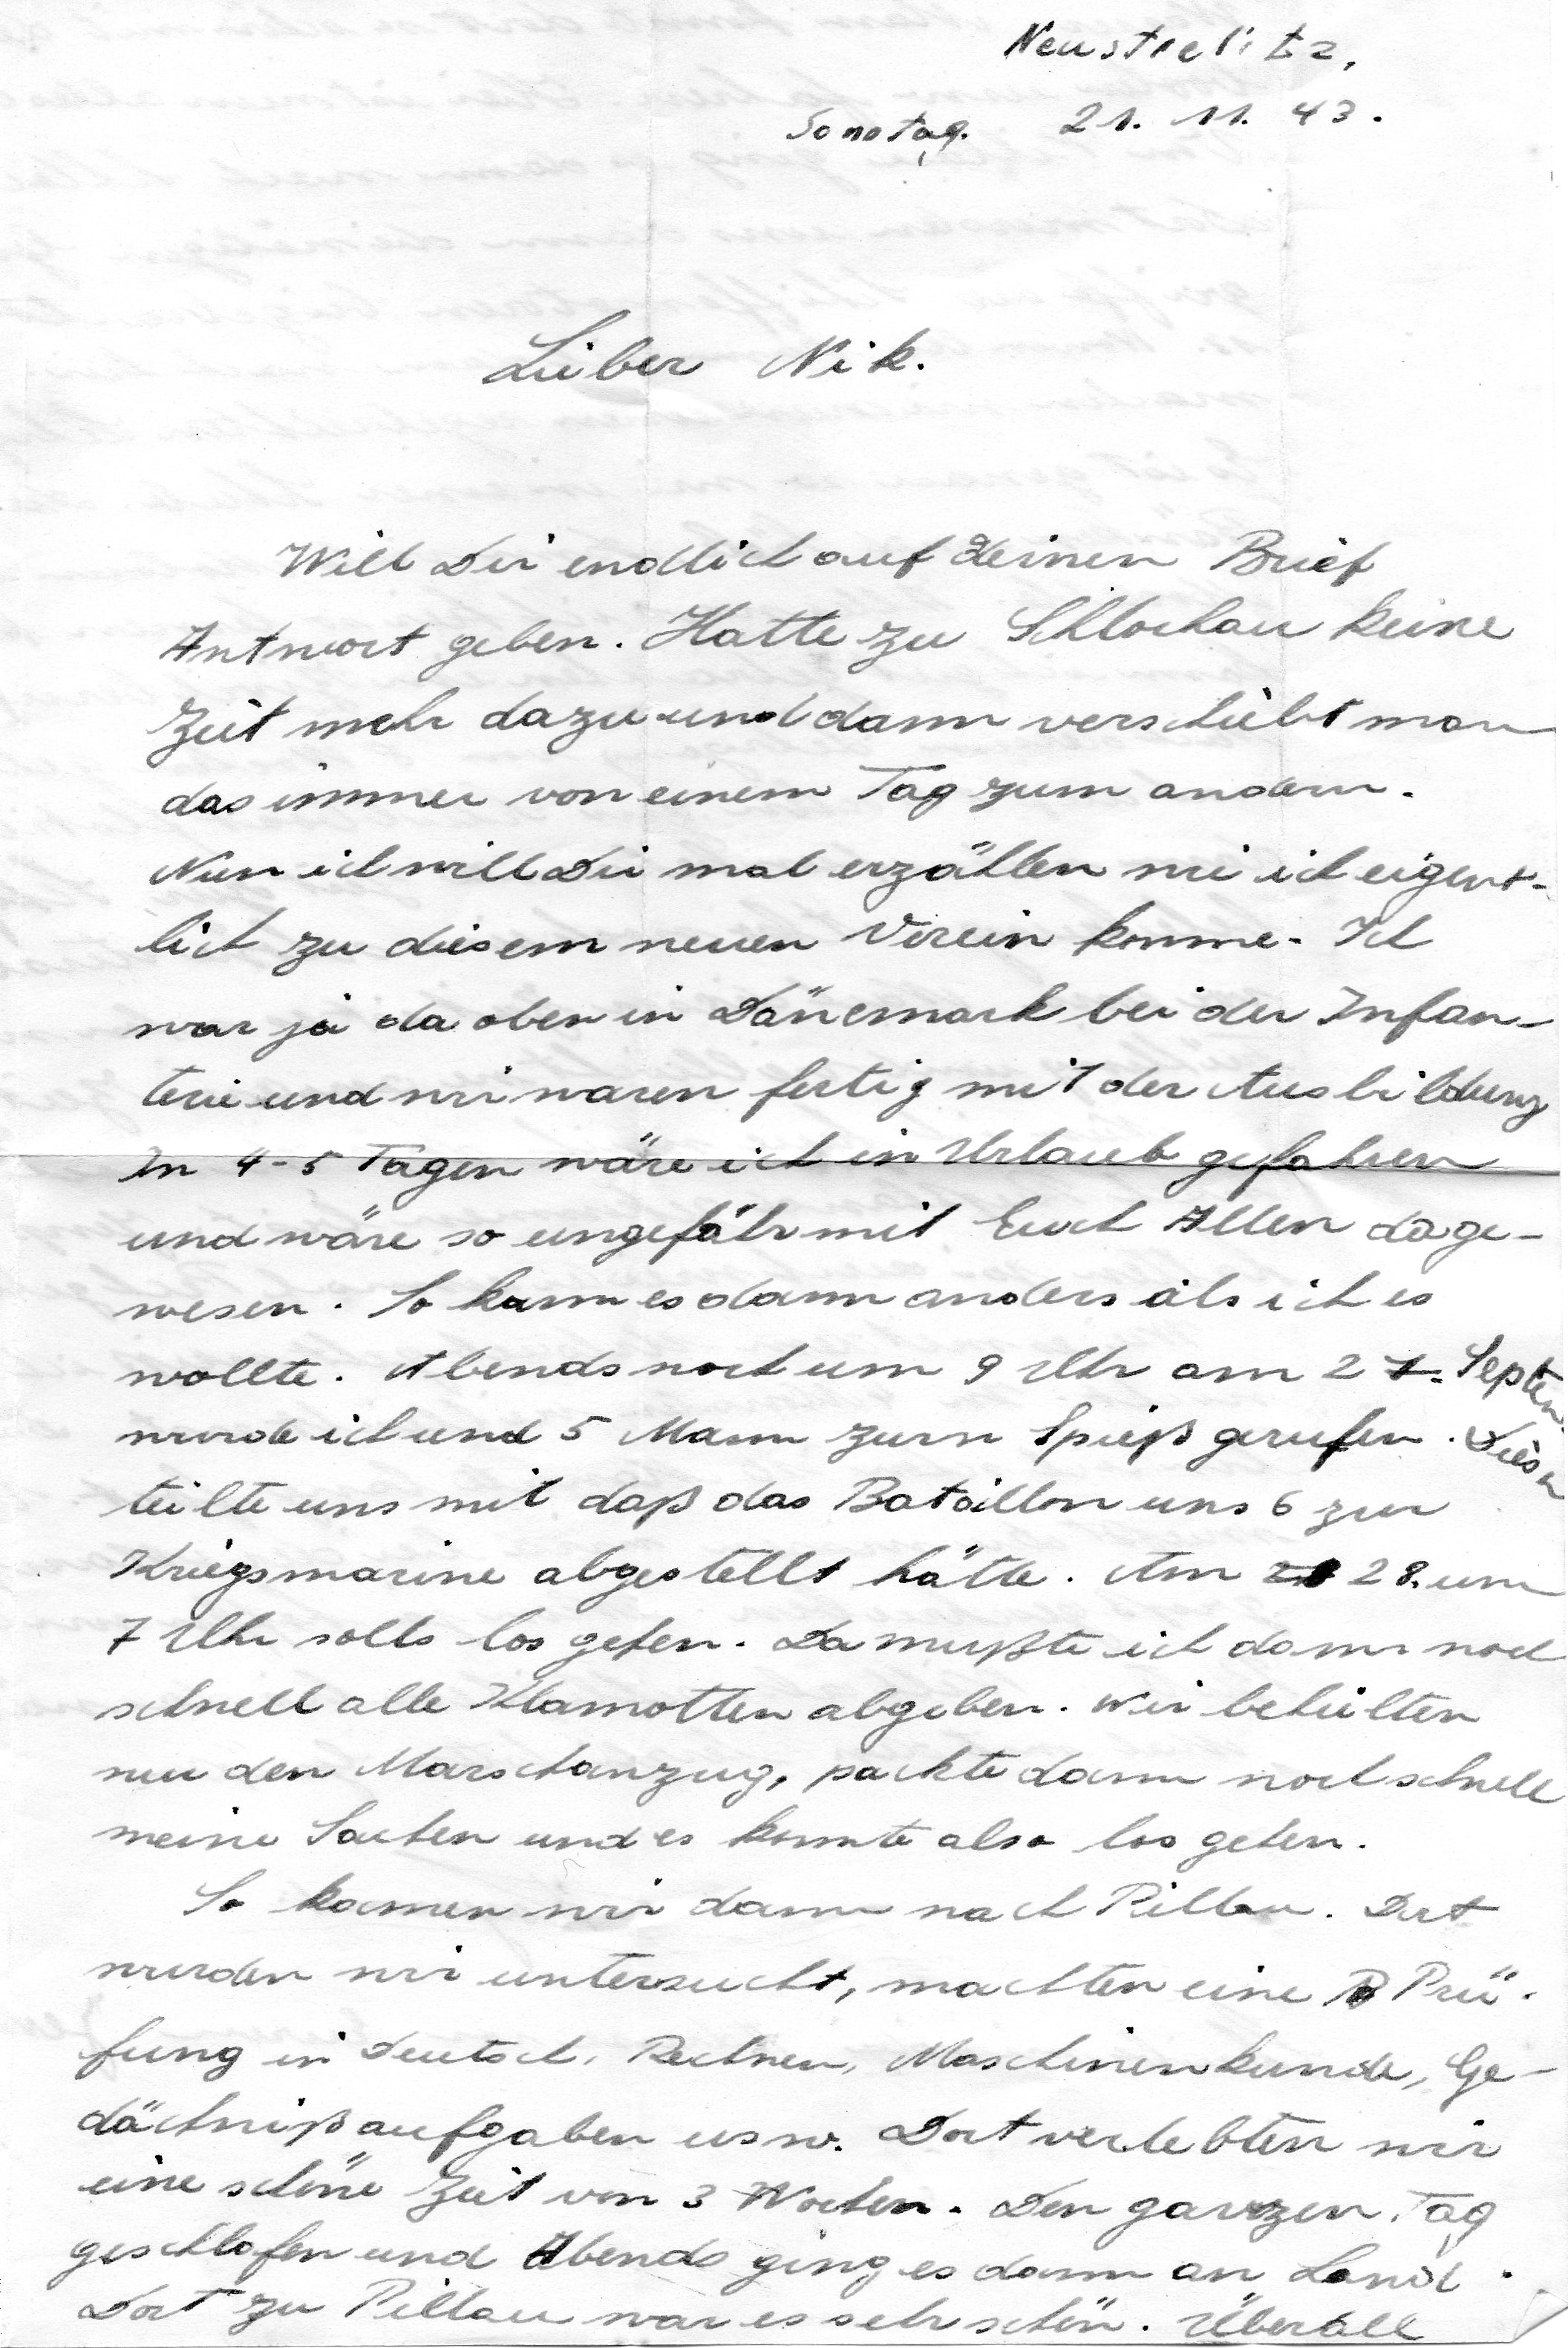 Neustrelitz,
Sonntag. 21. 11. 43.
Lieber Nik.
Will Dir endlich auf deinen Brief
Antwort geben. Hatte zu Schlochau keine
Zeit mehr dazu und dann verschiebt man
das immer von einem Tag zum andern.
Nun ich will Dir mal erzählen wie ich eigent-
lich zu diesem neuen Verein komme. Ich
war ja da oben in Dänemark bei der Infan-
terie und wir waren fertig mit der Ausbildung
In 4-5 Tagen wäre ich in Urlaub gefahren
und wäre so ungefähr mit Euch Allen dage-
wesen. So kam es dann anders als ich es
wollte. Abends noch um 9 Uhr am 27. Septem
wurde ich und 5 Mann zum Spieß gerufen. Dieser
teilte uns mit daß das Bataillon uns 6 zur
Kriegsmarine abgestellt hätte. Am 28. um
7 Uhr solls los gehen. Da mußte ich dann noch
schnell alle Klamotten abgeben. Wir behielten
nur den Marschanzug, packte dann noch schnell
meine Sachen und es konnte also los gehen.
So kamen wir dann nach Pillau. Dort
wurden wir untersucht, machten eine Prü-
fung in Deutsch, Rechnen, Maschinenkunde, Ge-
dächtnißaufgaben usw. Dort verlebten wir
eine schöne Zeit von 3 Wochen. Den ganzen Tag
geschlafen und Abends ging es dann an Land.
Dort zu Pillau war es sehr schön. Überall